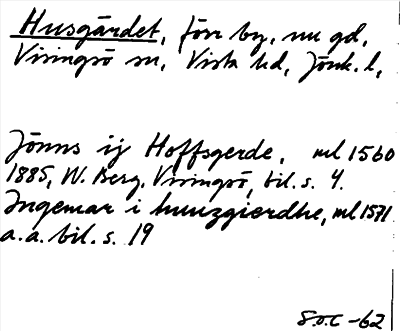 Husgärdet, förr by, nu gd,
Visingsö sn, Vista hd, Jönk. l,
Jönns ij Hoffsgerde, ml 1560
1885, W. Berg, Visingsö, bil. s. 4.
Ingemar i huuzgierdhe, ml 1571
a. a. bil. s. 19
S.O.C -62